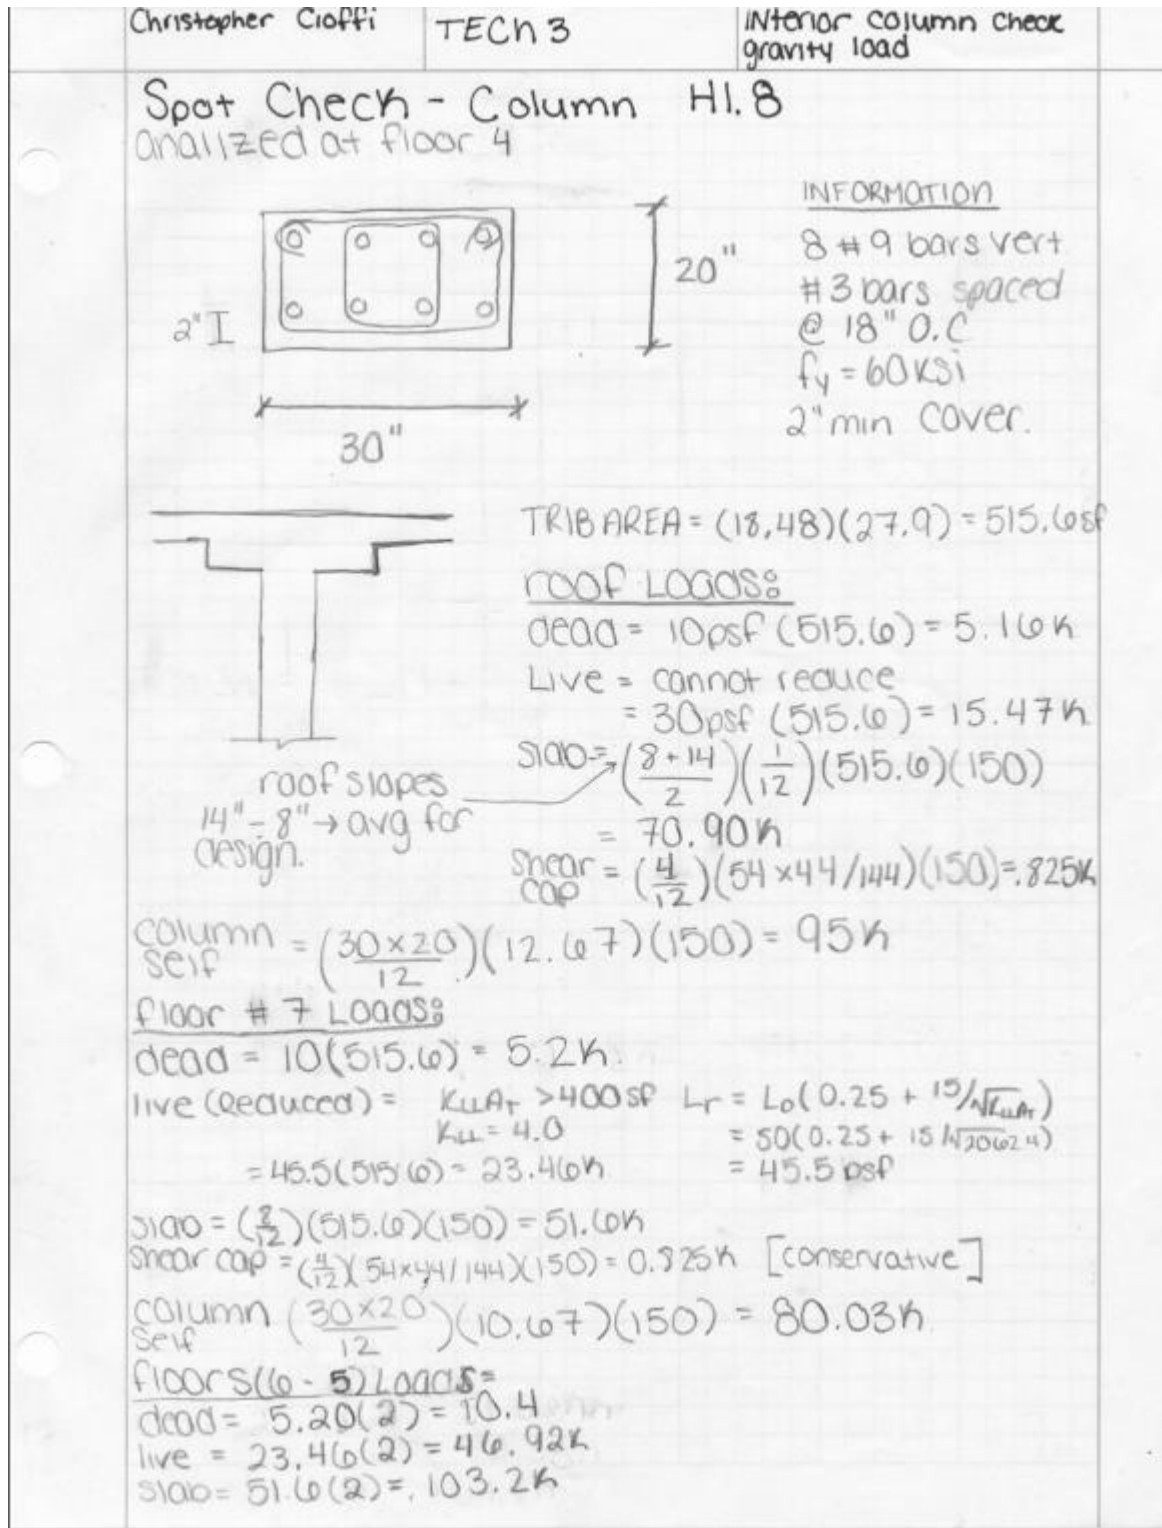 Christopher Cioffi
TECh 3
INterior column check
gravity load
Spot Check - Column H1.8
analized at floor 4
INFORMATION
8 #9 bars vert
#3 bars spaced
@ 18" O.C
fy = 60ksi
2" min cover.
20"
2"
30"
TRIB AREA = (18.48)(27.9) = 515.6sf
roof Loads:
dead = 10psf (515.6) = 5.16k
Live = cannot reduce
= 30psf (515.6) = 15.47k
slab = (8+14/2)(1/12)(515.6)(150)
= 70.90k
roof slopes
14" - 8" → avg for
design.
shear cap = (4/12)(54×44/144)(150)=.825k
column self = (30×20/12)(12.67)(150) = 95k
floor #7 Loads:
dead = 10(515.6) = 5.2k.
live (Reduced) = KLLAT >400sf Lr = Lo(0.25 + 15/√KLLAT)
KLL = 4.0 = 50(0.25 + 15/√2062.4)
= 45.5(515.6) = 23.46k = 45.5 psf
slab = (8/12)(515.6)(150) = 51.6k
shear cap = (4/12)(54×44/144)(150) = 0.825k [conservative]
column self (30×20/12)(10.67)(150) = 80.03k
floors(6-5) Loads=
dead = 5.20(2) = 10.4
live = 23.46(2) = 46.92k
slab = 51.6(2) = 103.2k